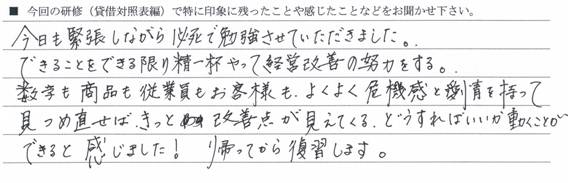 ■ 今回の研修（貸借対照表編）で特に印象に残ったことや感じたことなどをお聞かせ下さい。
今日も緊張しながら必死で勉強させていただきました。
できることをできる限り精一杯やって経営改善の努力をする。
数字も商品も従業員もお客様も、よくよく危機感と愛情を持って
見つめ直せば、きっと改善点が見えてくる、どうすればいいか動くことが
できると感じました！ 帰ってから復習します。